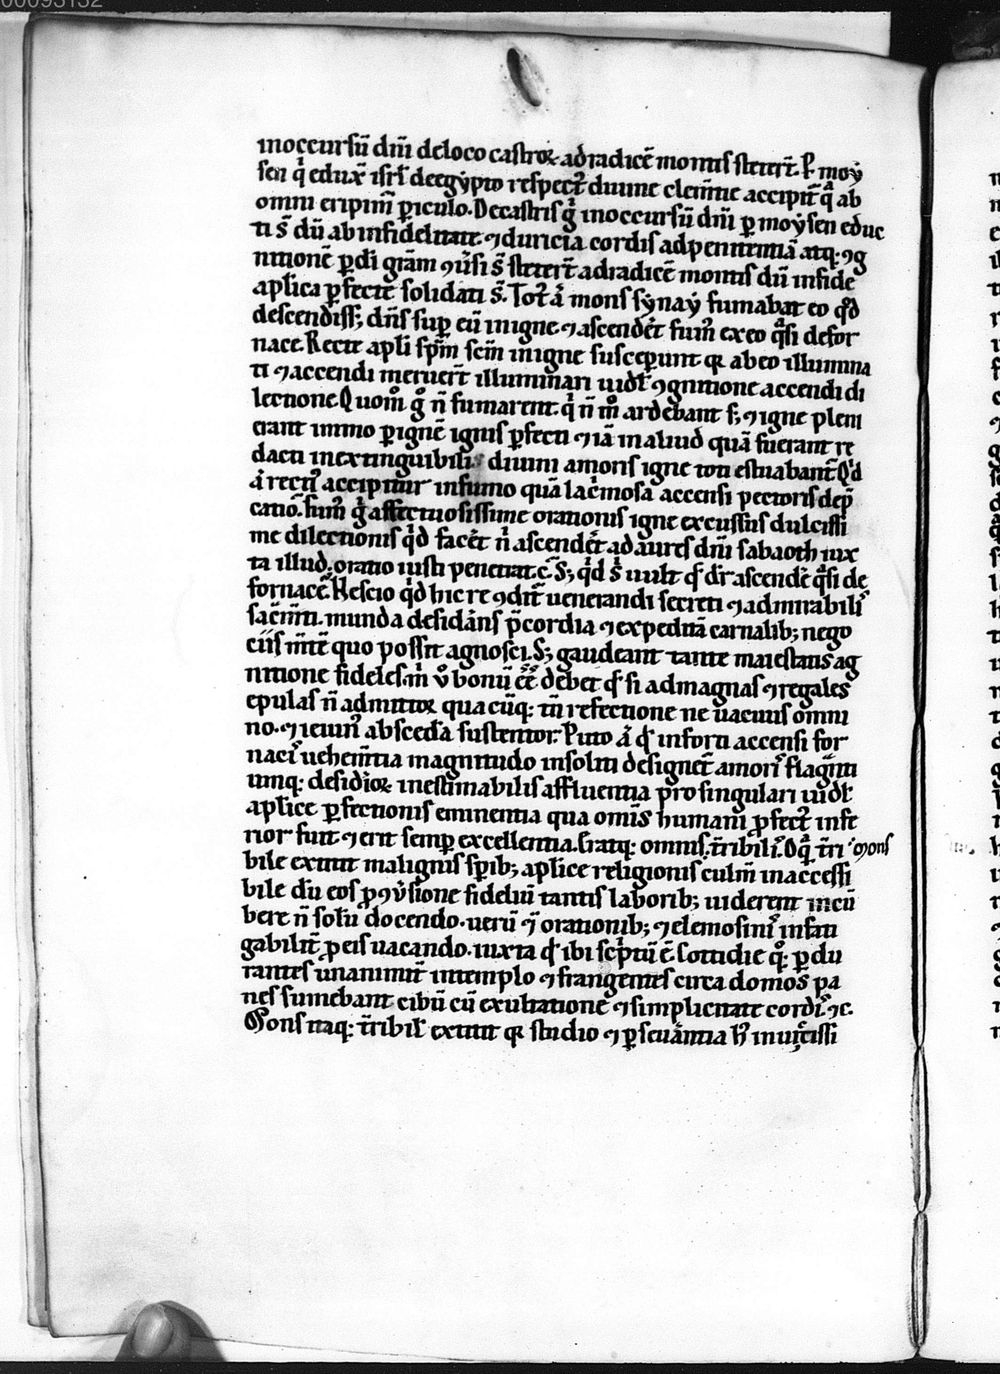 00093132
inoccursū dm̄i deloco castroꝝ adradicē montis steter̄t. P̲ moy
sen q̇ edux̄ isrl̄ deegypto respect᷒ diuine clem̄tie accipit᷑ q̇ ab
omni eripim᷒ ꝑiculo. Decastris gͦ inoccursū dm̄i ꝑ moysen educ
ti s̄ dū ab infidelitate ⁊ duricia cordis adpenitentiā atq; ꝯg
nitionē ꝑdi grām ꝯūsi s̄ steter̄t adradicē montis dū infide
aplica ꝑfecte solidati s̄. Tot᷒ ā mons synay fumabat eo qd̄
descendiss; dn̄s suꝑ eū inigne ⁊ ascender̄t fum᷒ exeo q̄si defor
nace. Recte apl̄i sp̄m sc̄m inigne susceperunt qꝛ abeo illumina
ti ⁊ accendi meruer̄t illuminari uidel̄ ꝯgnitione accendi di
lectione. Quom̊ gͦ n̄ fumarent q̇ n̄ m̊ ardebant s; ⁊ igne pleni
erant immo ꝑ ignē ignis ꝑfecti ⁊ iā inaliud quā fuerant re
dacti inextinguibili diuini amoris igne toti estuabant᷑. Qd̄
ā rectī accipitur infumo quā lac̄mosa accensi pectoris dep̄
catio. Fum᷒ gͦ affectuosissime orationis igne excussus dulcissi
me dilectionis qd̄ facer̄t n̄ ascender̄t ad aures dn̄i sabaoth iux
ta illud. oratio iusti penetrat. c̄. S; qd̄ s̄ uult qd̄ dr̄ ascendē q̄si de
fornacē. Nescio qd̄ hic reꝯdit᷑ uenerandi secreti ⁊ admirabilis
sac̄m̄ti. munda desidāns p̄cordia ⁊ expeditā carnalib; nego
ciis m̄tē quo possit agnosci. S; gaudeant tante maiestatis ag
nitione fideles. m̄ ů bonū ēē debet qd̄ si admagnas ⁊ regales
epulas n̄ admittoꝝ qua cūq; tn̄ refectione ne uacuus omni
no ⁊ ieiun᷒ abscedā sustentor. Puto ā qd̄ inforti accensi for
nacis uehem̄tia magnitudo insoliti designet᷑ amoris flagm̄ti
umq; desidioꝝ inestimabilis affluentia pro singulari uidel̄
aplice ꝑfectionis eminentia qua om̄is humani ꝓfect᷒ infe
rior fuit ⁊ erit semꝑ excellentia. Eratq; omnis t̄ribilis. Oq̄ t̄ri mons
bile extitit malignis sp̄ib; aplice religionis culm̄ inaccessi
bile dū eos ꝓ ꝯūsione fideliū tantis laborib; uiderent incū
bere n̄ solū docendo. uerū ⁊ orationib; ⁊ elemosinis infati
gabilit᷑ ꝓ eis uacando. iuxta qd̄ ibi sc̄ptū ē. Cottidie q̇q; ꝑdu
rantes unanimit᷑ intemplo ⁊ frangentes circa domos pa
nes sumebant cibū cū exultatione ⁊ simplicitate cordis ⁊c.
Mons itaq; t̄ribil᷑ extitit qꝛ studio ⁊ ꝑseuāntia h᷑ inuictissi